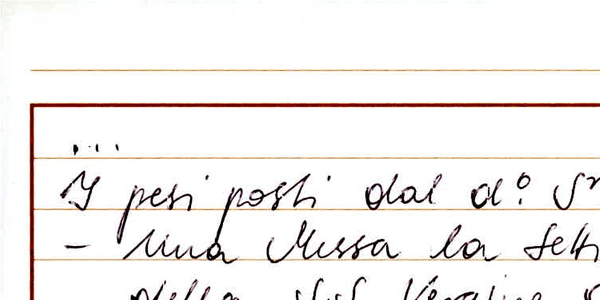 ...
I pesi posti dal d.º S
- Una Messa la Sett
della SS.ᵃ Vergine